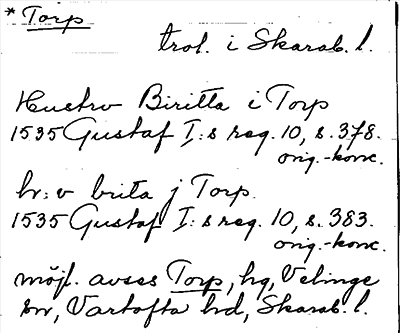 * Torp
trol. i Skarab. l.
Hustru Biritta i Torp
1535 Gustaf I:s reg. 10, s. 378.
orig.-konc.
hr: v brita j Torp.
1535 Gustaf I:s reg. 10, s. 383.
orig.-konc.
möjl. avses Torp, hg, Velinge
sn, Vartofta hd, Skarab. l.